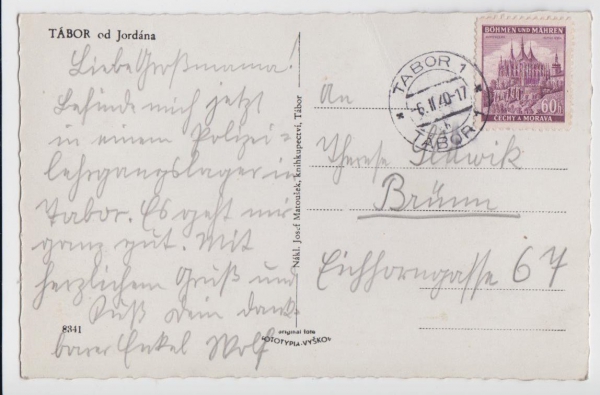 TÁBOR od Jordána
Liebe Großmama!
Befinde mich jetzt
in einem Polizei=
lehrgangslager in
Tabor. Es geht mir
ganz gut. Mit
herzlichem Gruß und
Kuß Dein dank-
barer Enkel Wolf
8341
Nákl. Josef Matoušek, knihkupectví, Tábor
original foto
FOTOTYPIA-VYŠKOV
BÖHMEN UND MÄHREN
60h
ČECHY A MORAVA
TÁBOR 1
-6.II.40-17
TÁBOR 1
An
Therese
Brünn
Eichhorngasse 67